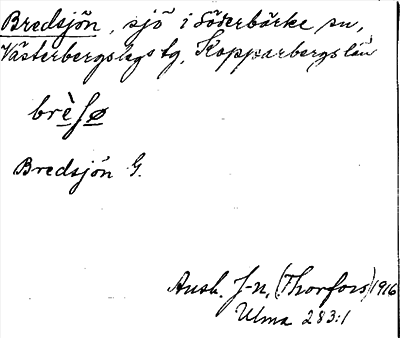 Bredsjön, sjö i Söderbärke sn,
Västerbergslags tg, Kopparbergs län
brèʃø
Bredsjön G.
Ansh. J-n, (Thorfors) 1916
Ulma 283:1